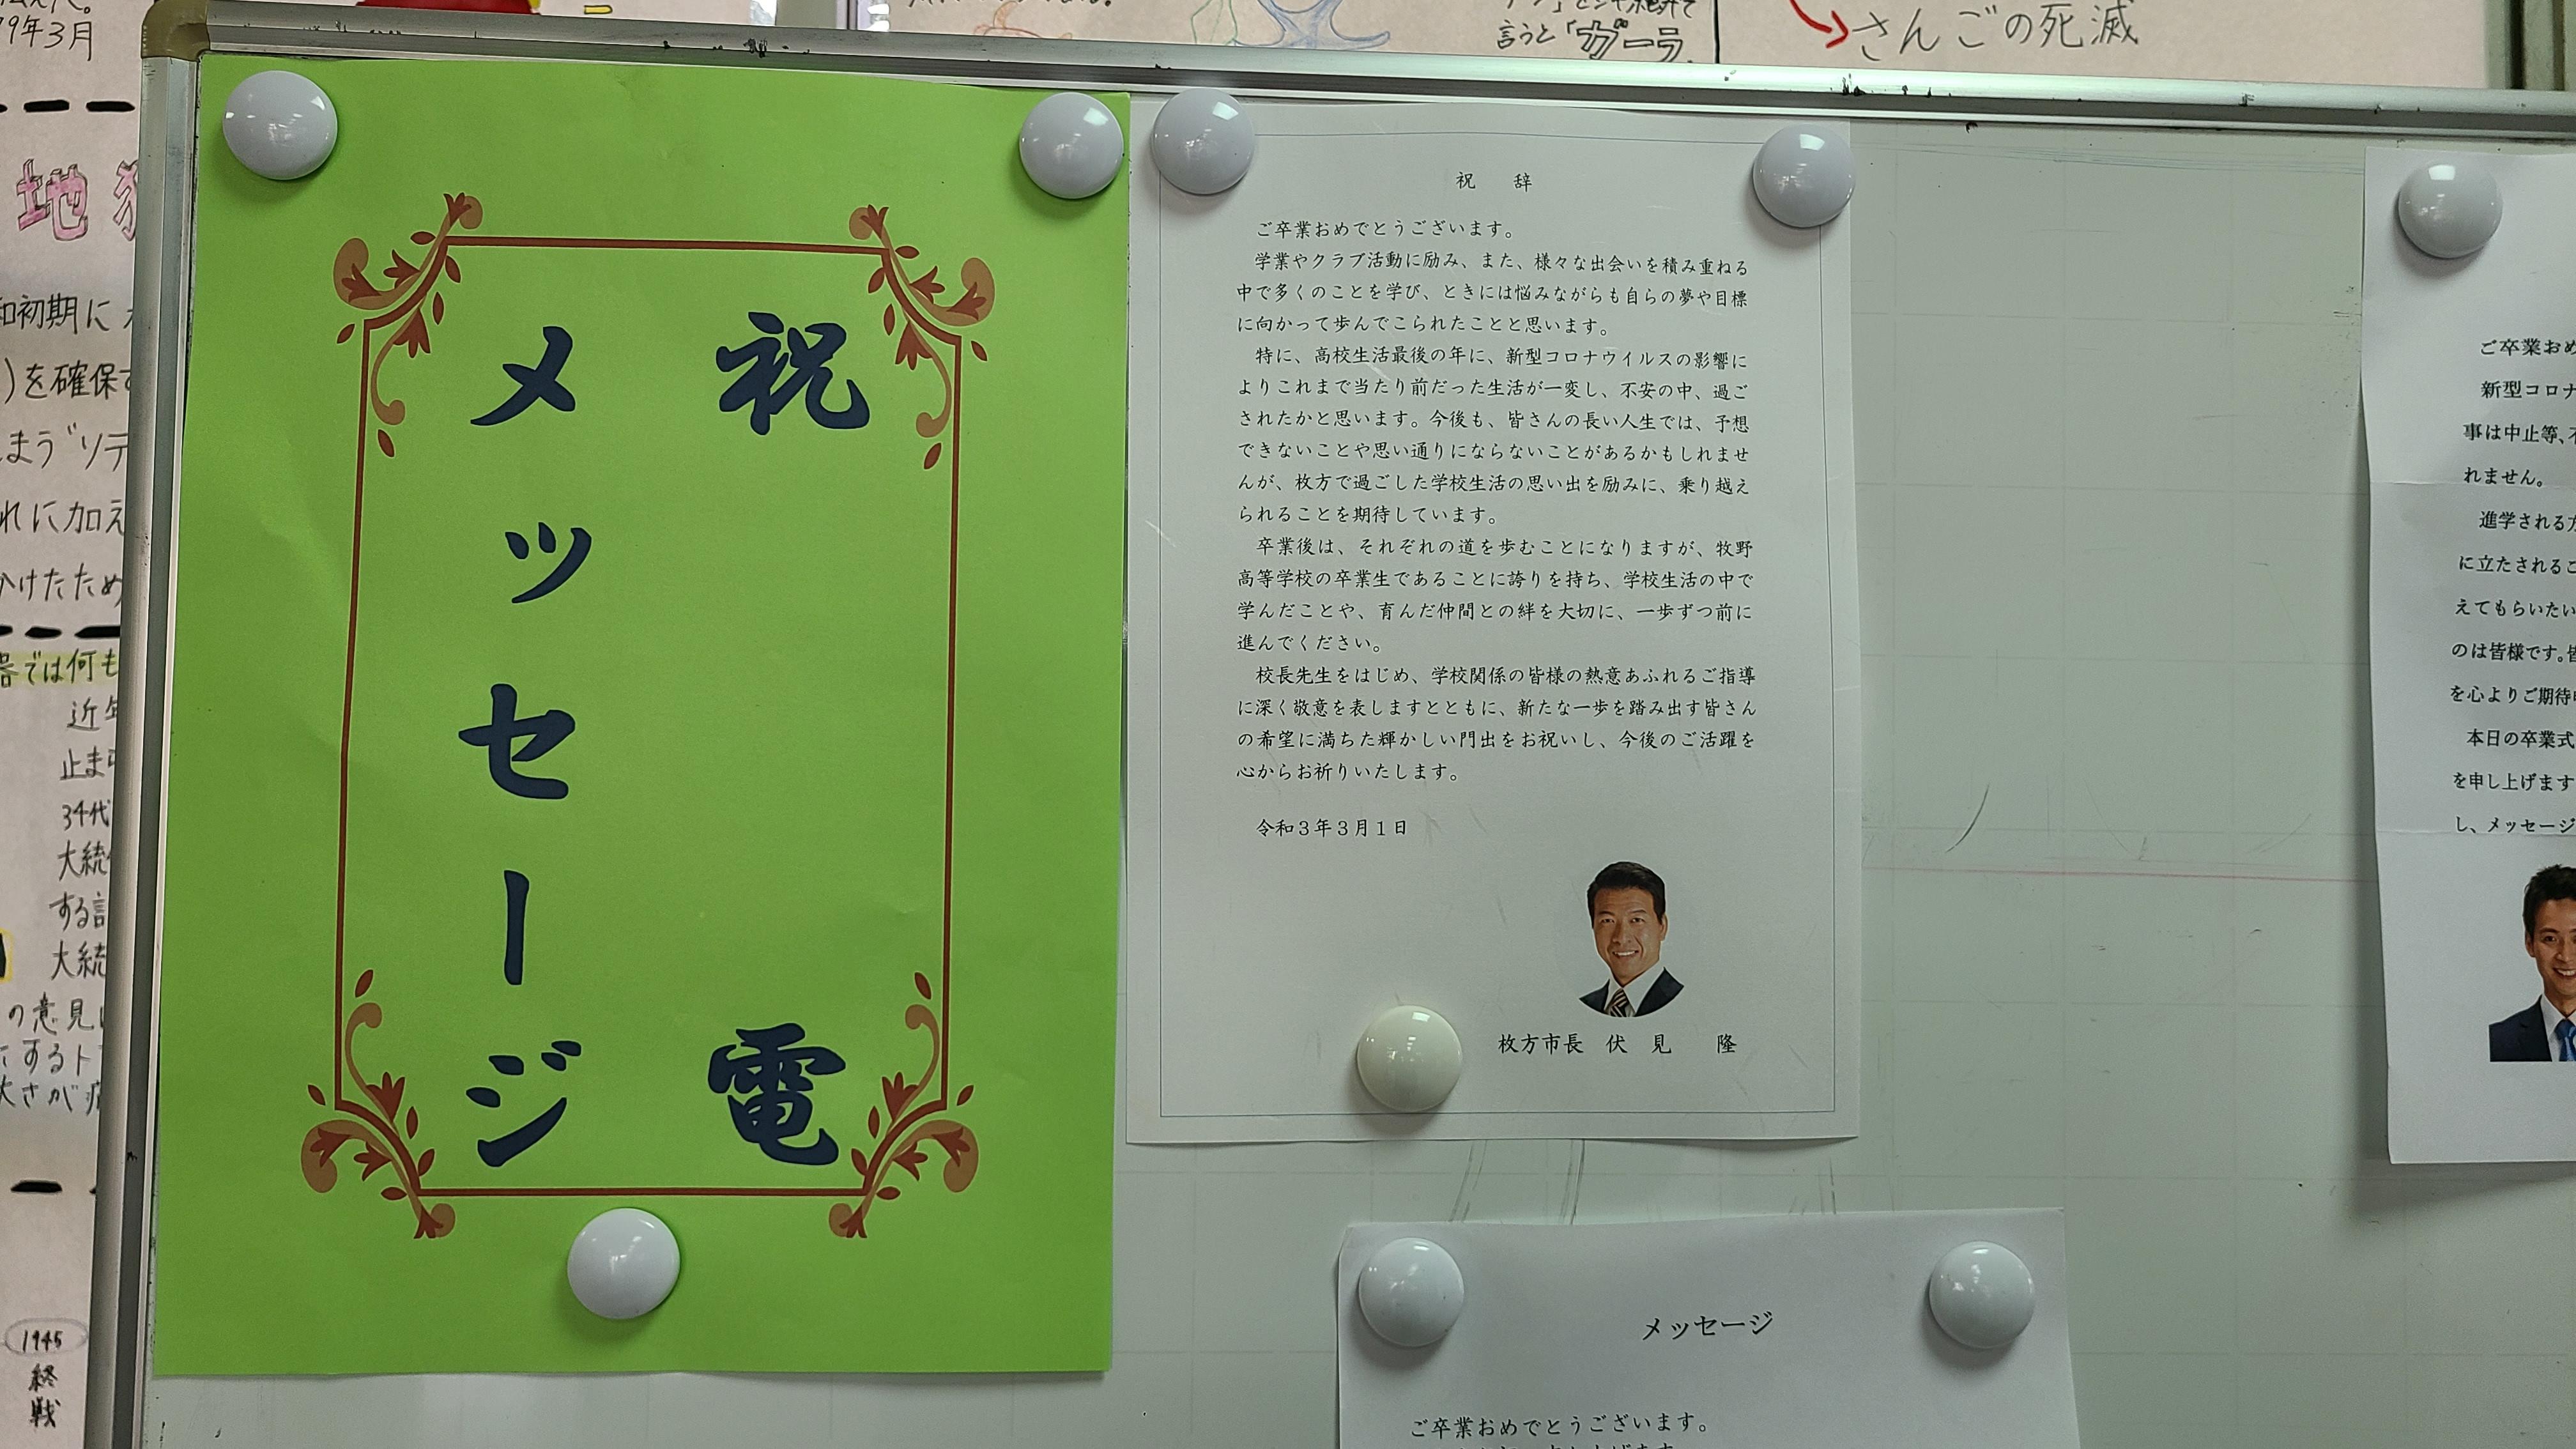 9年3月
言うと「ガーラ
さんごの死滅
地
和初期に
)を確保
まう"ソテ
れに加え
かけたため
器では何も
近年
止まら
34代
大統
する
大統
の意見
にするト
大さが
1945
終
戦
祝電
メッセージ
祝　辞
ご卒業おめでとうございます。
学業やクラブ活動に励み、また、様々な出会いを積み重ねる
中で多くのことを学び、ときには悩みながらも自らの夢や目標
に向かって歩んでこられたことと思います。
特に、高校生活最後の年に、新型コロナウイルスの影響に
よりこれまで当たり前だった生活が一変し、不安の中、過ご
されたかと思います。今後も、皆さんの長い人生では、予想
できないことや思い通りにならないことがあるかもしれませ
んが、枚方で過ごした学校生活の思い出を励みに、乗り越え
られることを期待しています。
卒業後は、それぞれの道を歩むことになりますが、牧野
高等学校の卒業生であることに誇りを持ち、学校生活の中で
学んだことや、育んだ仲間との絆を大切に、一歩ずつ前に
進んでください。
校長先生をはじめ、学校関係の皆様の熱意あふれるご指導
に深く敬意を表しますとともに、新たな一歩を踏み出す皆さん
の希望に満ちた輝かしい門出をお祝いし、今後のご活躍を
心からお祈りいたします。
令和３年３月１日
枚方市長　伏　見　　隆
メッセージ
ご卒業おめでとうございます。
ご卒業おめ
新型コロナ
事は中止等、
れません。
進学される方
に立たされるこ
えてもらいたい
のは皆様です。皆
を心よりご期待
本日の卒業式
を申し上げます
し、メッセージ